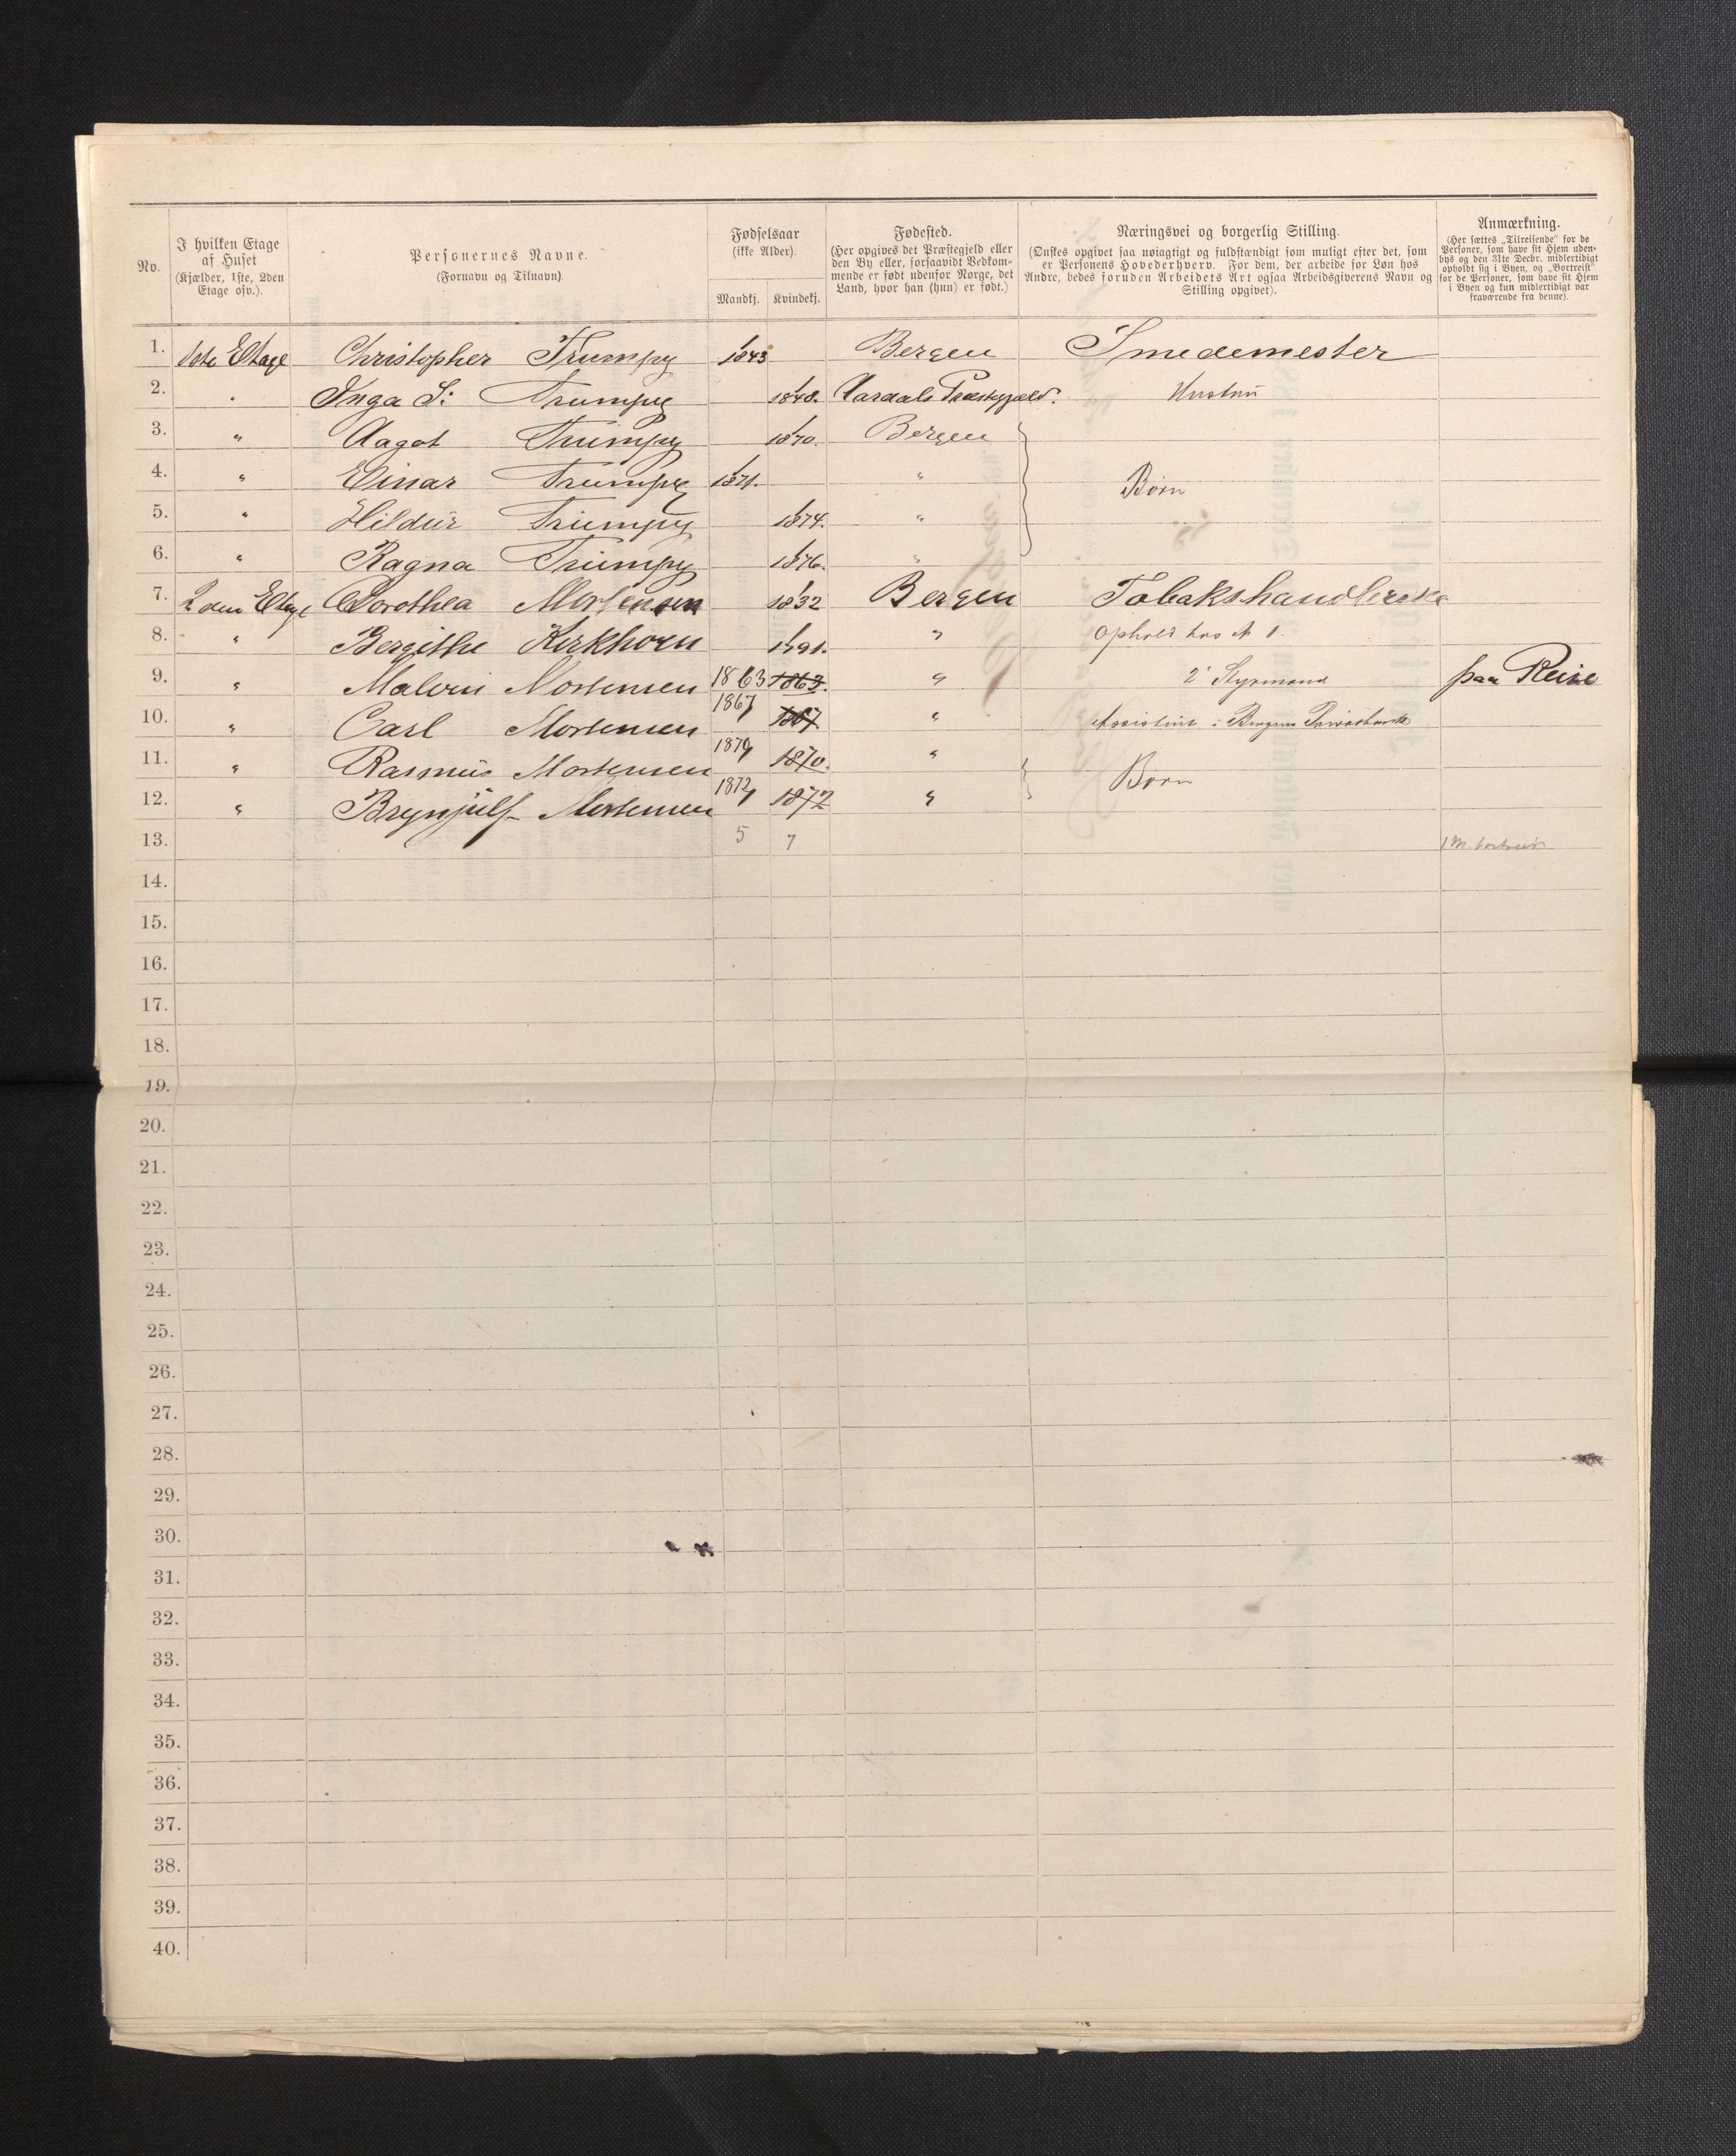 No.
I hvilken Etage af Huset (Kjælder, 1ste, 2den Etage osv.).
Personernes Navne. (Fornavn og Tilnavn).
Fødselsaar (ikke Alder).
Mandkj. Kvindekj.
Fødested. (Her opgives det Præstegjeld eller den By eller, forsaavidt Vedkommende er født udenfor Norge, det Land, hvor han (hun) er født.)
Næringsvei og borgerlig Stilling. (Ønskes opgivet saa nøiagtigt og fuldstændigt som muligt efter det, som er Personens Hovederhverv. For dem, der arbeide for Løn hos Andre, bedes foruden Arbeidets Art ogsaa Arbeidsgiverens Navn og Stilling opgivet).
Anmærkning. (Her sættes „Tilreisende“ for de Personer, som have sit Hjem udenbys og den 31te Decbr. midlertidigt opholdt sig i Byen, og „Bortreist“ for de Personer, som have sit Hjem i Byen og kun midlertidigt var fraværende fra denne).
1. 1ste Etage Christopher Trumpy 1843 Bergen Smedemester
2. " Inga S: Trumpy 1848. Aardals Præstegjæld. Hustru
3. " Aagot Trumpy 1870. Bergen
4. " Einar Trumpy 1871. " Børn
5. " Hildur Trumpy 1874. "
6. " Ragna Trumpy 1876. "
7. 2den Etage Dorothea Mortensen 1832 Bergen Tobakshandlerske
8. " Bergithe Kirkhorn " Ophold hos № 1.
9. " Mortensen 1863 1863. " 2' Styrmand paa Reise
10. " Carl Mortensen 1867 1867. " Assistent i Bergens Privatbank
11. " Rasmus Mortensen 1870 1870. "
12. " Brynjulf Mortensen 1872 1872 " Børn
13. 5 7 1 M. bortreist
14.
15.
16.
17.
18.
19.
20.
21.
22.
23.
24.
25.
26.
27.
28.
29.
30.
31.
32.
33.
34.
35.
36.
37.
38.
39.
40.